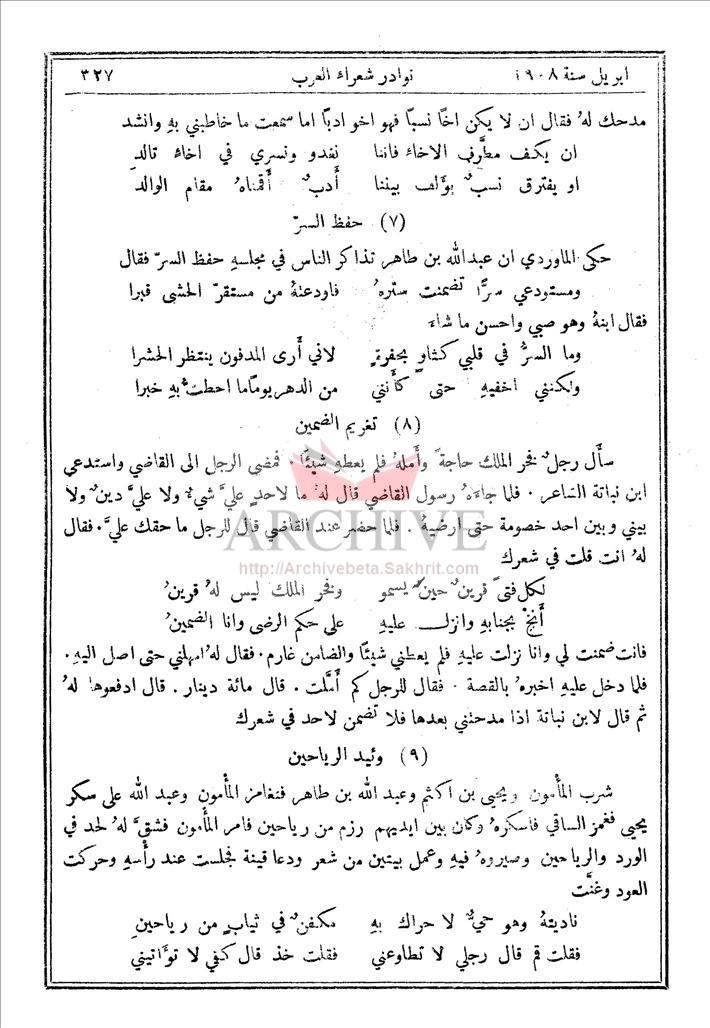 ابريل سنة ١٩٠٨ نوادر شعراء العرب ٣٢٧
مدحك لهُ فقال ان لا يكن اخًا نسبًا فهو اخو ادبًا اما سمعت ما خاطبني بهِ وانشد
ان يكف مطَّرف الاخاء فاننا نغدو ونسري في اخاء تالدِ
او يفترق نسبٌ يؤلف بيننا أدبٌ أقمناهُ مقام الوالد
(٧) حفظ السرّ
حكى الماوردي ان عبدالله بن طاهر تذاكر الناس في مجلسهِ حفظ السرّ فقال
ومستودعي سرًّا تضمنت سترهُ فاودعتهُ من مستقرّ الحشى قبرا
فقال ابنهُ وهو صبي واحسن ما شاء
وما السرُّ في قلبي كثاوٍ بحفرةٍ لاني أرى المدفون ينتظر الحشرا
ولكنني اخفيهِ حتى كأنني من الدهر يومًا ما احطتُ بهِ خبرا
(٨) تغريم الضمين
سأل رجلٌ فخر الملك حاجةً وأملهُ فلم يعطهِ شيئًا . فمضى الرجل الى القاضي واستدعي
ابن نباتة الشاعر . فلما جاءهُ رسول القاضي قال لهُ ما لاحدٍ عليَّ شيءٌ ولا عليَّ دينٌ ولا
بيني وبين احد خصومة حتى ارضيهُ . فلما حضر عند القاضي قال للرجل ما حقك عليَّ . فقال
لهُ انت قلت في شعرك
ARCHIVE
http://Archivebeta.Sakhrit.com
لكل فتىً قرينٌ حين يسمو وفخر الملك ليس لهُ قرينُ
أنخْ بجنابهِ وانزل عليهِ على حكم الرضى وانا الضمينُ
فانت ضمنت لي وانا نزلت عليهِ فلم يعطني شيئًا والضامن غارم . فقال لهُ امهلني حتى اصل اليهِ .
فلما دخل عليهِ اخبرهُ بالقصة . فقال للرجل كم أمَّلت . قال مائة دينار . قال ادفعوها لهُ
ثم قال لابن نباتة اذا مدحتني بعدها فلا تضمن لاحد في شعرك
(٩) وئيد الرياحين
شرب المأمون ويحيى بن اكثم وعبد الله بن طاهر فتغامز المأمون وعبد الله على سكر
يحيى فغمز الساقي فاسكرهُ وكان بين ايديهم رزم من رياحين فامر المأمون فشقَّ لهُ لحد في
الورد والرياحين وصيروهُ فيهِ وعمل بيتين من شعر ودعا قينة فجلست عند رأسهِ وحركت
العود وغنَّت
ناديتهُ وهو حيٌّ لا حراك بهِ مكفنٌ في ثيابٍ من رياحينِ
فقلت قم قال رجلي لا تطاوعني فقلت خذ قال كفي لا تؤاتيني